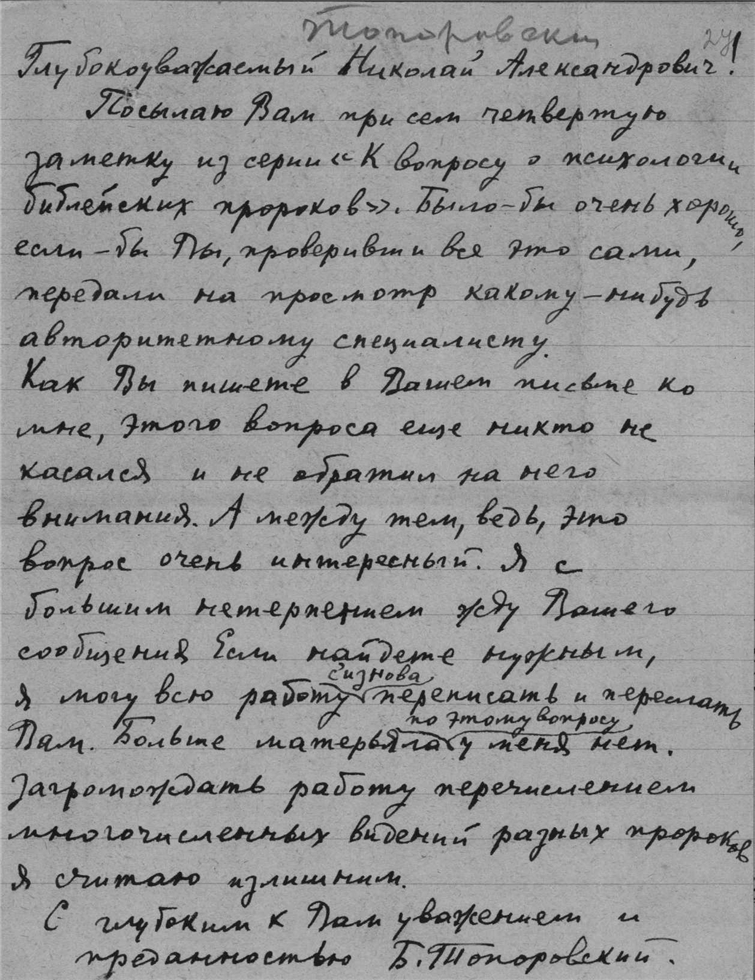 Топоровский
27
Глубокоуважаемый Николай Александрович!
Посылаю Вам при сем четвертую
заметку из серии «К вопросу о психологии
библейских пророков». Было-бы очень хорошо,
если-бы Вы, проверивши все это сами,
передали на просмотр какому-нибудь
авторитетному специалисту.
Как Вы пишете в Вашем письме ко
мне, этого вопроса еще никто не
касался и не обратил на него
внимания. А между тем, ведь, это
вопрос очень интересный. Я с
большим нетерпением жду Вашего
сообщения Если найдете нужным,
сизнова
я могу всю работу переписать и переслать
по этому вопросу
Вам. Больше матерьяла у меня нет.
Загромождать работу перечислением
многочисленных видений разных пророков
я считаю излишним.
С глубоким к Вам уважением и
преданностью Б. Топоровский.